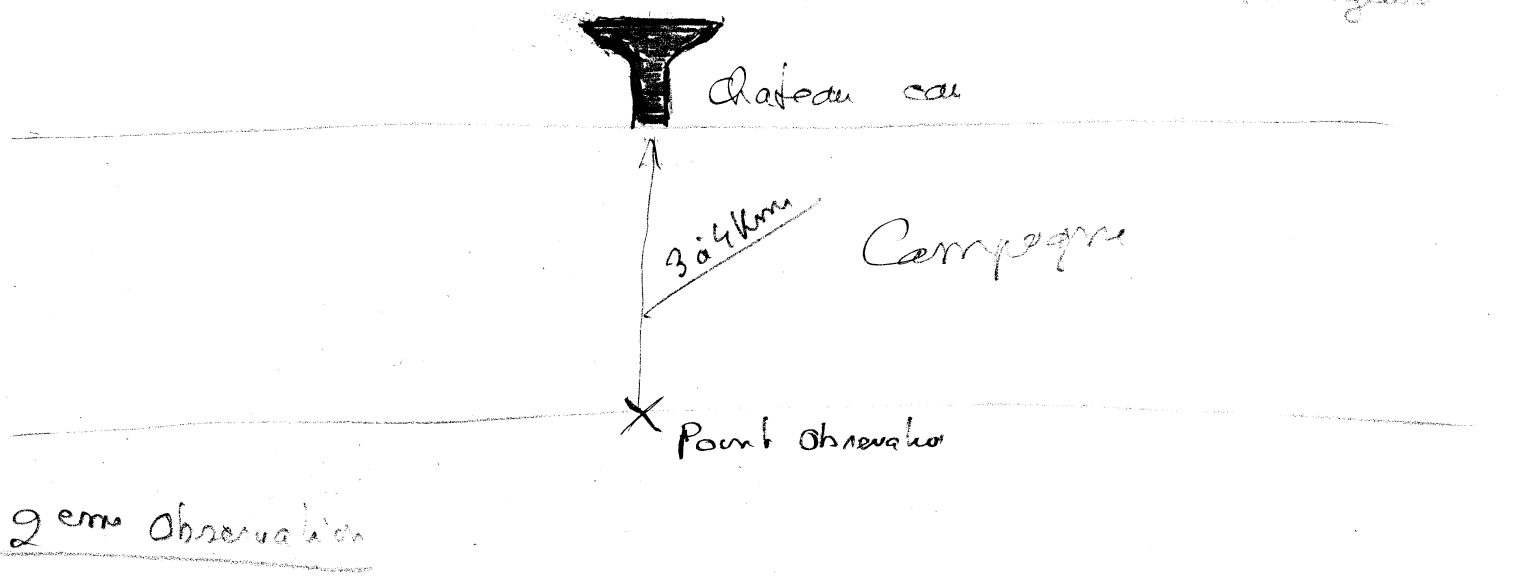 Chateau eau
3 à 4 Km
Campagne
Point Observatio
2eme Observation